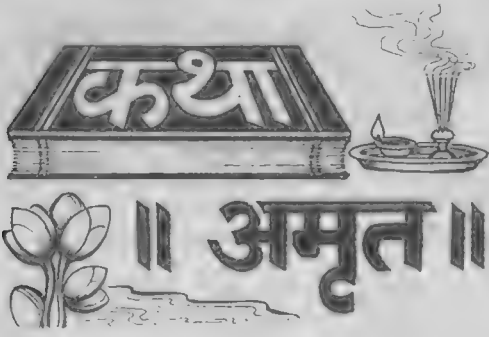 कथा
॥ अमृत ॥